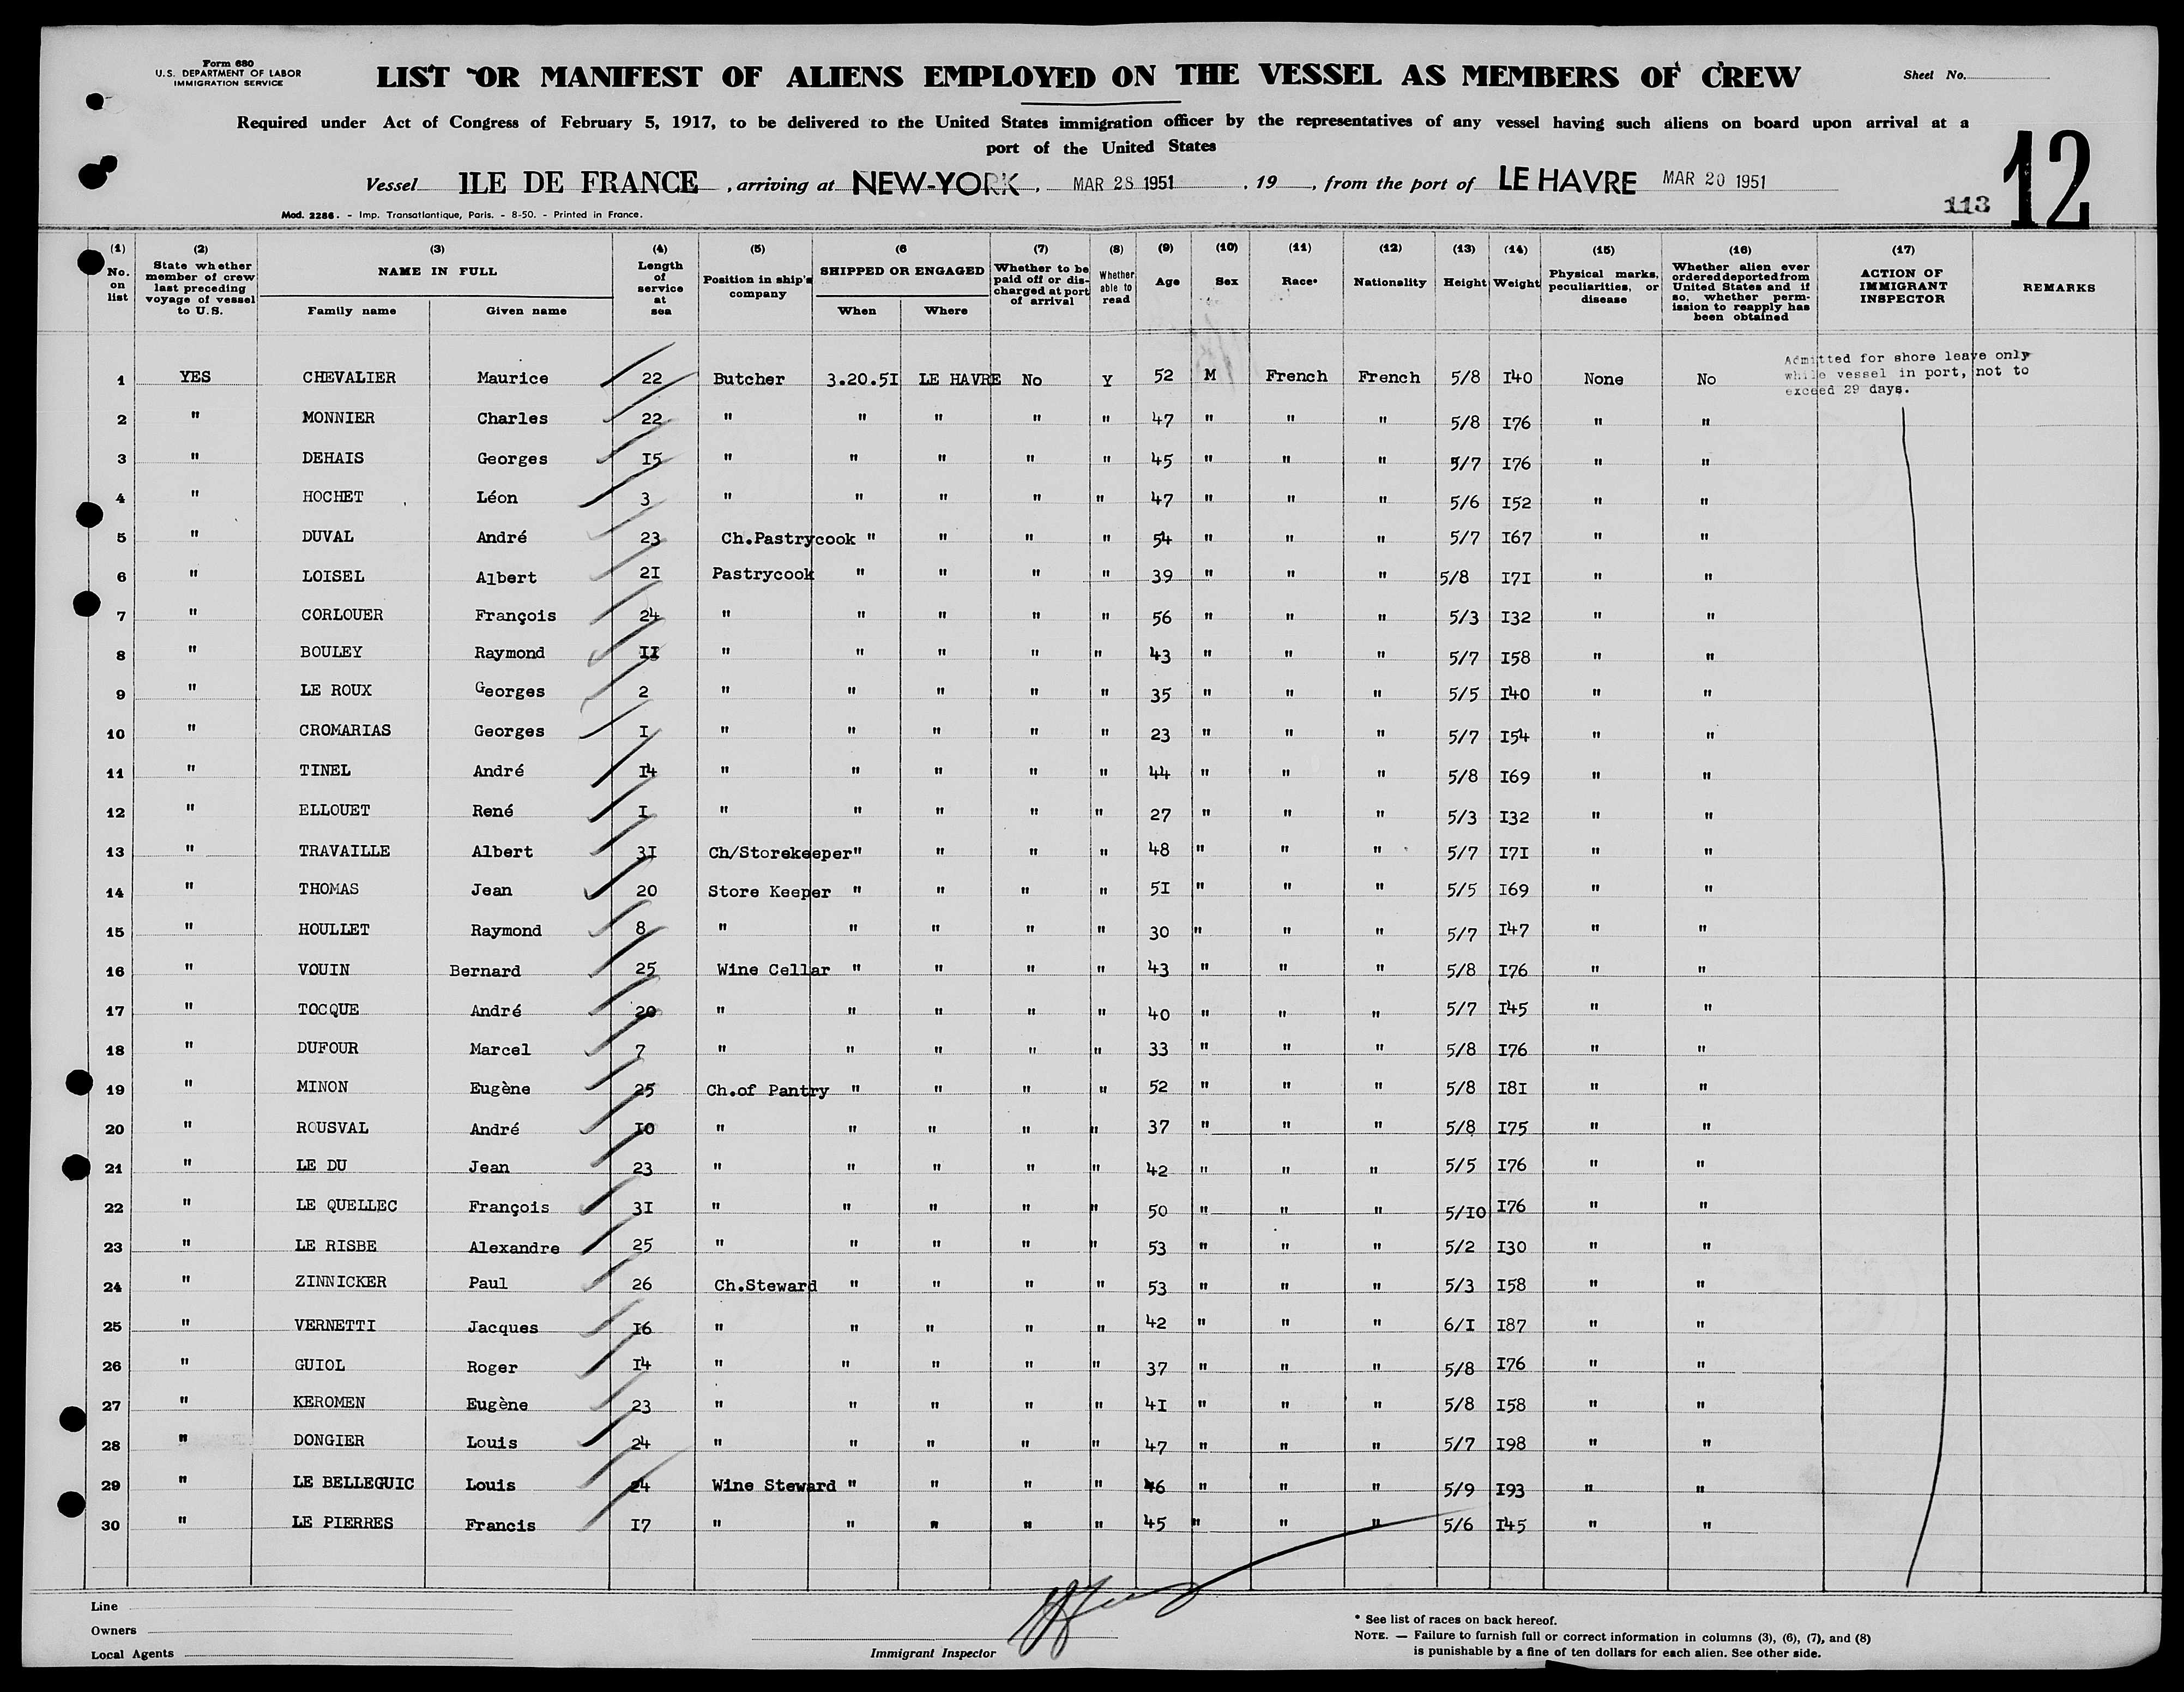 Form 680
U.S. DEPARTMENT OF LABOR
IMMIGRATION SERVICE
LIST OR MANIFEST OF ALIENS EMPLOYED ON THE VESSEL AS MEMBERS OF CREW
Sheet No.
Required under Act of Congress of February 5, 1917, to be delivered to the United States immigration officer by the representatives of any vessel having such aliens on board upon arrival at a
port of the United States
12
Vessel ILE DE FRANCE , arriving at NEW-YORK , MAR 28 1951 , 19 , from the port of LE HAVRE MAR 20 1951
Mod. 2286. - Imp. Transatlantique, Paris. - 8-50. - Printed in France.
113
(1) (2) (3) (4) (5) (6 (7) (8) (9) (10) (11) (12) (13) (14) (15) (16) (17)
No. on list State whether member of crew last preceding voyage of vessel to U.S. NAME IN FULL Family name Given name Length of service at sea Position in ship's company SHIPPED OR ENGAGED When Where Whether to be paid off or discharged at port of arrival Whether able to read Age Sex Race* Nationality Height Weight Physical marks, peculiarities, or disease Whether alien ever ordered deported from United States and if so, whether permission to reapply has been obtained ACTION OF IMMIGRANT INSPECTOR REMARKS
Admitted for shore leave only
while vessel in port, not to
exceed 29 days.
1 YES CHEVALIER Maurice 22 Butcher 3.20.51 LE HAVRE No Y 52 M French French 5/8 140 None No
2 " MONNIER Charles 22 " " " " " 47 " " " 5/8 176 " "
3 " DEHAIS Georges 15 " " " " " 45 " " " 5/7 176 " "
4 " HOCHET Léon 3 " " " " " 47 " " " 5/6 152 " "
5 " DUVAL André 23 Ch.Pastrycook " " " " 54 " " " 5/7 167 " "
6 " LOISEL Albert 21 Pastrycook " " " " 39 " " " 5/8 171 " "
7 " CORLOUER François 24 " " " " " 56 " " " 5/3 132 " "
8 " BOULEY Raymond 11 " " " " " 43 " " " 5/7 158 " "
9 " LE ROUX Georges 2 " " " " " 35 " " " 5/5 140 " "
10 " CROMARIAS Georges 1 " " " " " 23 " " " 5/7 154 " "
11 " TINEL André 14 " " " " " 44 " " " 5/8 169 " "
12 " ELLOUET René 1 " " " " " 27 " " " 5/3 132 " "
13 " TRAVAILLE Albert 31 Ch/Storekeeper " " " " 48 " " " 5/7 171 " "
14 " THOMAS Jean 20 Store Keeper " " " " 51 " " " 5/5 169 " "
15 " HOULLET Raymond 8 " " " " " 30 " " " 5/7 147 " "
16 " VOUIN Bernard 25 Wine Cellar " " " " 43 " " " 5/8 176 " "
17 " TOCQUE André 20 " " " " " 40 " " " 5/7 145 " "
18 " DUFOUR Marcel 7 " " " " " 33 " " " 5/8 176 " "
19 " MINON Eugène 25 Ch.of Pantry " " " " 52 " " " 5/8 181 " "
20 " ROUSVAL André 10 " " " " " 37 " " " 5/8 175 " "
21 " LE DU Jean 23 " " " " " 42 " " " 5/5 176 " "
22 " LE QUELLEC François 31 " " " " " 50 " " " 5/10 176 " "
23 " LE RISBE Alexandre 25 " " " " " 53 " " " 5/2 130 " "
24 " ZINNICKER Paul 26 Ch.Steward " " " " 53 " " " 5/3 158 " "
25 " VERNETTI Jacques 16 " " " " " 42 " " " 6/1 187 " "
26 " GUIOL Roger 14 " " " " " 37 " " " 5/8 176 " "
27 " KEROMEN Eugène 23 " " " " " 41 " " " 5/8 158 " "
28 " DONGIER Louis 24 " " " " " 47 " " " 5/7 198 " "
29 " LE BELLEGUIC Louis 24 Wine Steward " " " " 46 " " " 5/9 193 " "
30 " LE PIERRES Francis 17 " " " " " 45 " " " 5/6 145 " "
Line
Owners
Local Agents
Immigrant Inspector
* See list of races on back hereof.
NOTE. — Failure to furnish full or correct information in columns (3), (6), (7), and (8)
is punishable by a fine of ten dollars for each alien. See other side.